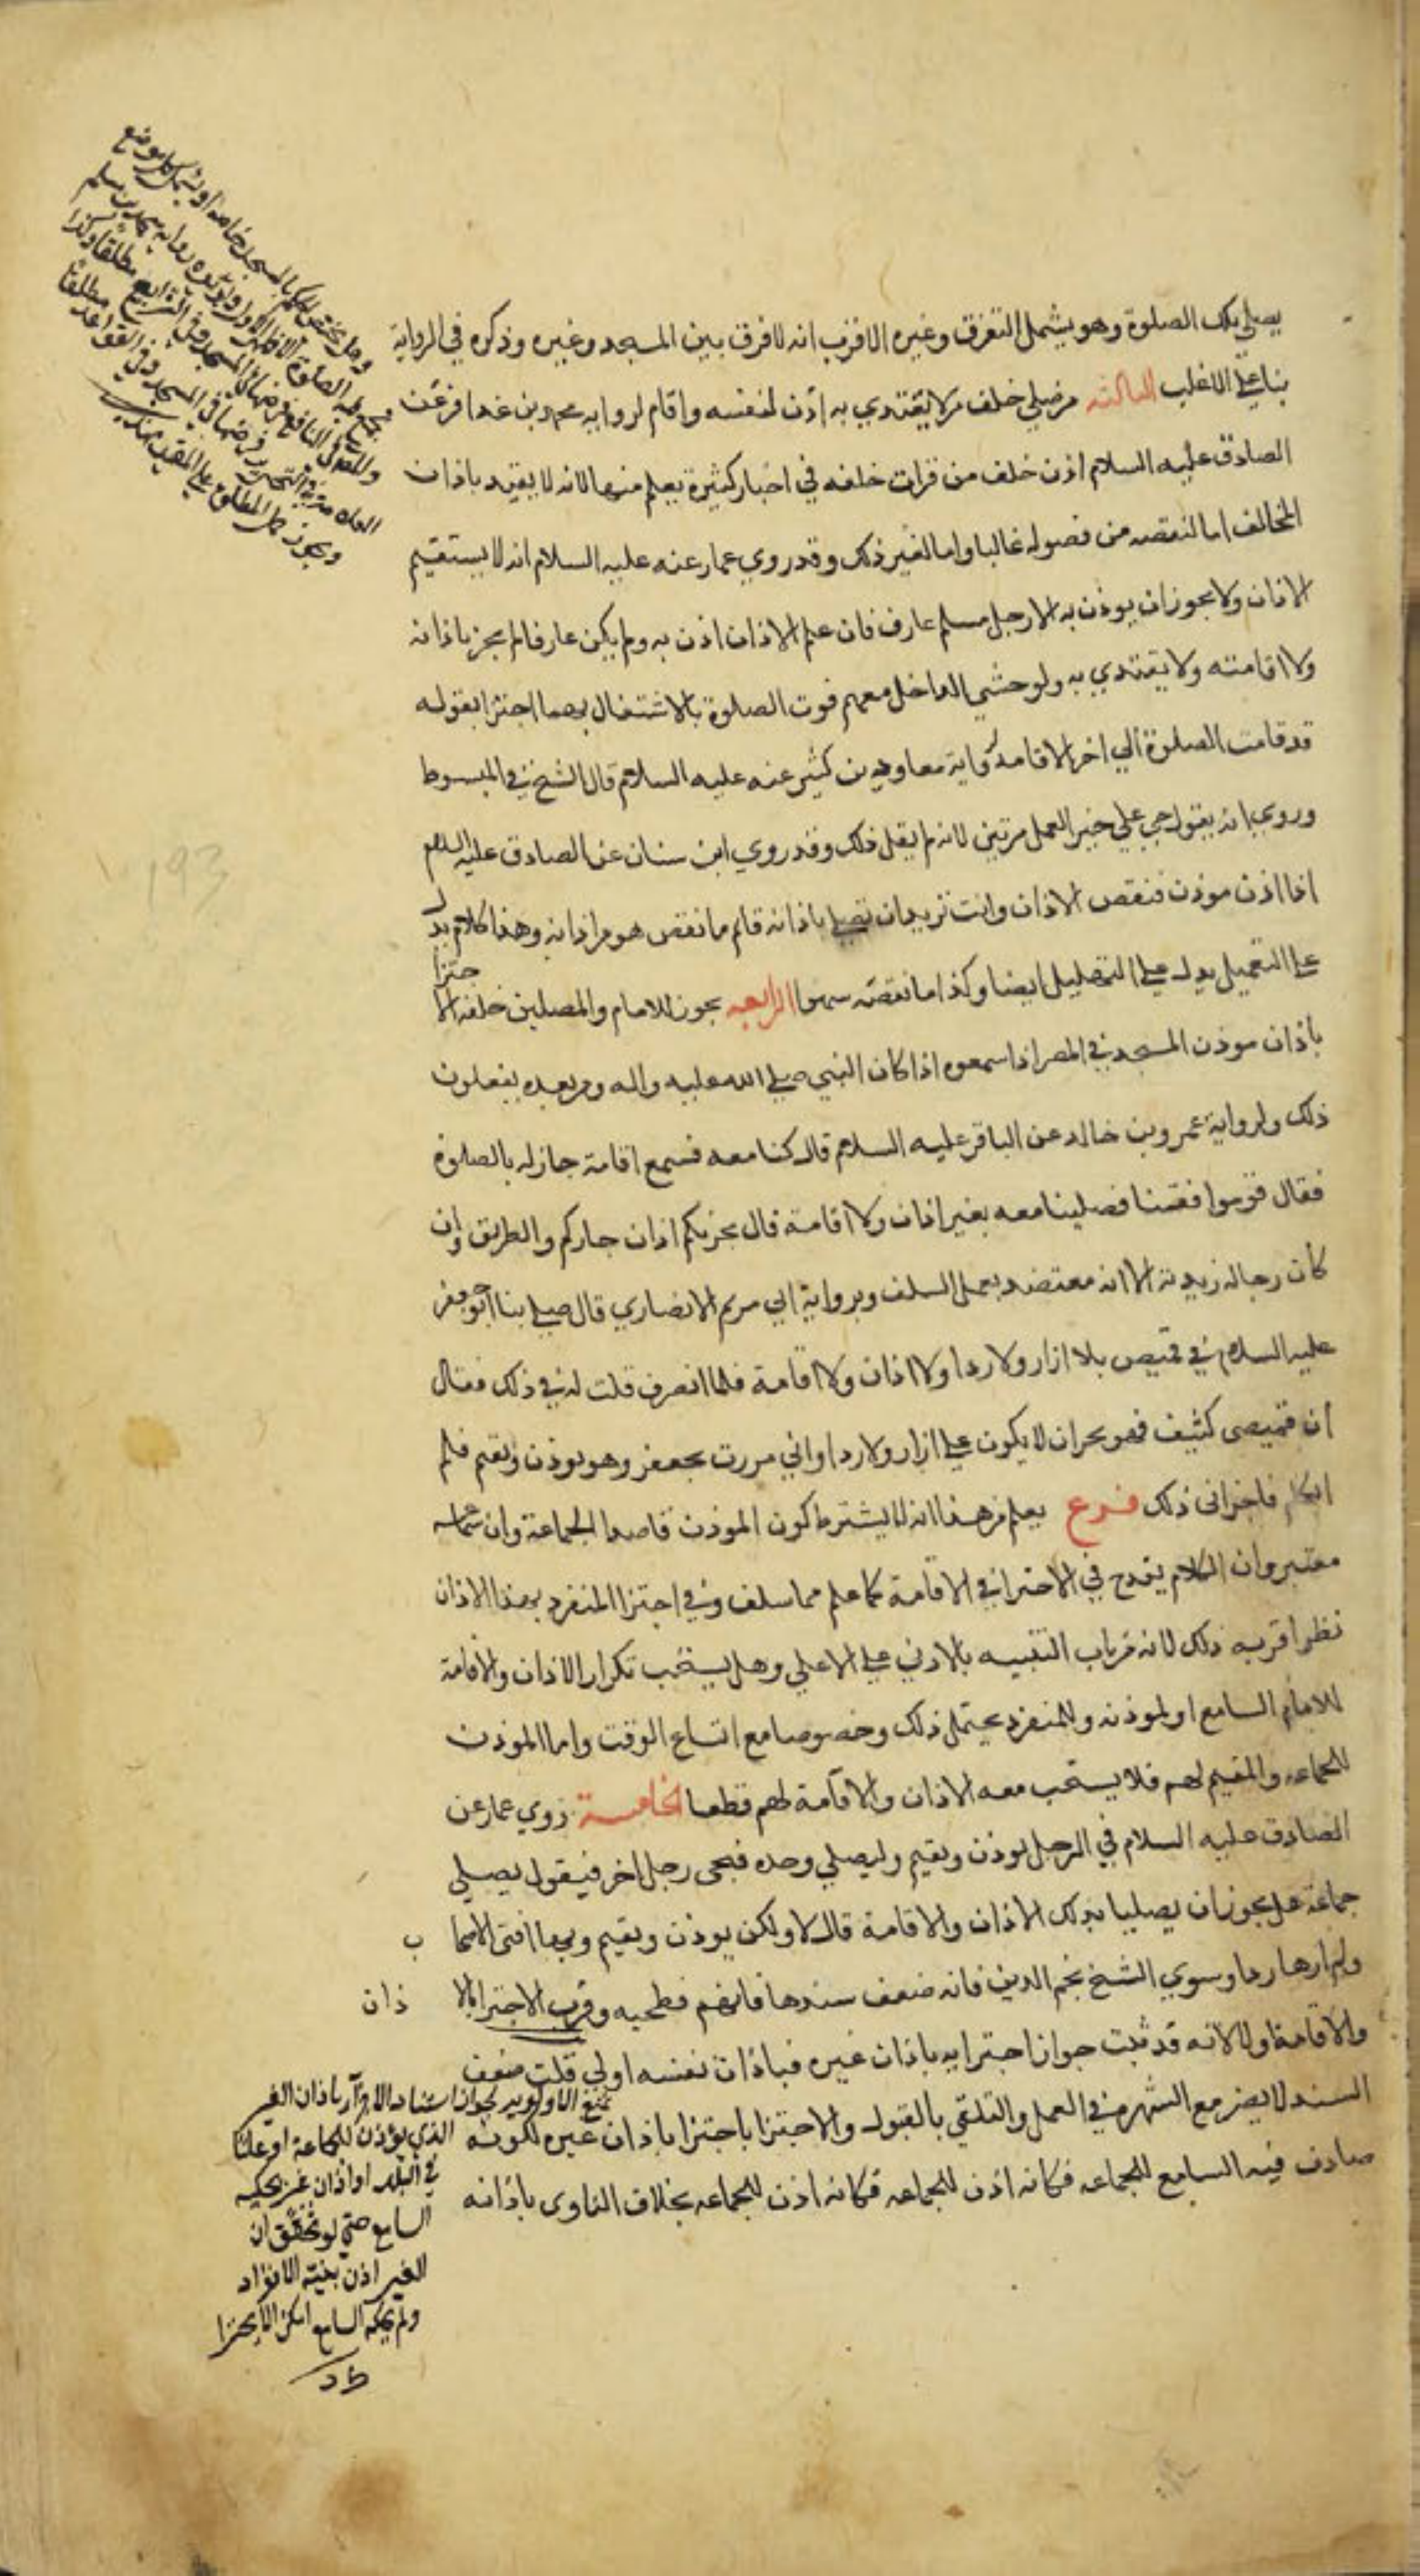 يصلي بك الصلوة وهو يشمل التفرق وغيره الاقرب انه لا فرق بين المسجد وغيره وذكره في الرواية
بناء علي الاغلب الثالثه من صلي خلف من لا يقتدي به اذن لنفسه واقام لروايه محمد بن عذافر عن
الصادق عليه السلام اذن خلف من قرات خلفه في اخبار كثيرة يعلم منها لانه لا يعتد باذان
المخالف اما لنقصه من فصوله غالبا واما لغير ذلك وقد روي عمار عنه عليه السلام انه لا يستقيم
الاذان ولا يجوز ان يوذن به الا رجل مسلم عارف فان علم الاذان اذن به ولم يكن عارفا لم يجز باذانه
ولا اقامته ولا يقتدي به ولو خشي الداخل معهم فوت الصلوة بالاشتغال بهما اجتزا بقوله
قد قامت الصلوة الي اخر الاقامة لرواية معاويه بن كثير عنه عليه السلام قال الشيخ في المبسوط
وروي انه يقول حي علي خير العمل مرتين لانه لم يقل ذلك وقد روي ابن سنان عن الصادق عليه السلام
اذا اذن موذن فنقص الاذان وانت تريد ان تصلي باذانه فاتم ما نقص هو من اذانه وهذا كلام يدل
علي التعميل يدل علي التهليل ايضا وكذا ما نقصه سهوا الرابعه يجوز للامام والمصلين خلفه الا
جتزا
باذان موذن المسجد في المصر اذا سمعوه اذا كان النبي صلي الله عليه واله ومن بعده يفعلون
ذلك ولرواية عمرو بن خالد عن الباقر عليه السلام قال كنا معه فسمع اقامة جار له بالصلوة
فقال قوموا فقمنا فصلينا معه بغير اذان ولا اقامة قال يجزيكم اذان جاركم والطريق وان
كان رجاله زيدية الا انه معتضد بعمل السلف وبرواية ابي مريم الانصاري قال صلي بنا ابو جعفر
عليه السلام في قميص بلا ازار ولا ردا ولا اذان ولا اقامة فلما انصرف قلت له في ذلك فقال
ان قميصي كثيف فهو يجزي ان لا يكون علي ازار ولا ردا واني مررت بجعفر وهو يوذن ويقيم فلم
اتكلم فاجزاني ذلك فرع يعلم من هذا انه لا يشترط كون الموذن قاصدا الجماعة وان سماعه
معتبر وان الكلام يقدح في الاجتزا في الاقامة كما علم مما سلف وفي اجتزا المنفرد بهذا الاذان
نظر اقربه ذلك لانه من باب التنبيه بالادني علي الاعلي وهل يستحب تكرار الاذان والاقامة
للامام السامع او لموذنه وللمنفرد يحتمل ذلك وخصوصا مع اتساع الوقت واما الموذن
للجماعه والمقيم لهم فلا يستحب معه الاذان والاقامة لهم قطعا الخامسة روي عمار عن
الصادق عليه السلام في الرجل يوذن ويقيم وليصلي وحده فيجي رجل اخر فيقول يصلي
جماعة هل يجوز ان يصليا بذلك الاذان والاقامة قال لا ولكن يوذن ويقيم وبها افتي الاصحا ب
ولم ار لها رادا وسوي الشيخ نجم الدين فانه ضعف سندها فانهم فطحيه وقرب الاجتزا بالا ذان
والاقامة اولا لانه قد ثبت جواز اجتزايه باذان غيره فباذان نفسه اولي قلت ضعف
السند لا يضر مع الشهرة في العمل والتلقي بالقبول والاجتزا باجتزا باذان غيره لكونه
صادف فيه السامع للجماعه فكانه اذن للجماعه فكانه اذن للجماعه بخلاف الناوي باذانه
الذي يوذن للجماعة او علنا
في البلد او اذان غير يحكيه
السامع حتي لو تحقق ان
الغير اذن بنية الانفراد
ولم يحكه السامع امكن الا يجتزا
193